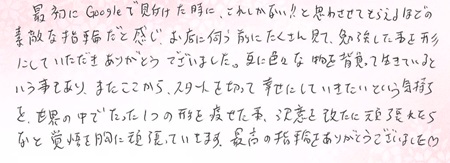 最初にGoogleで見付けた時に、これしかない!!と思わさせてもらえるほどの
素敵な指輪だと感じ、お店に伺う前にたくさん見て、勉強した事を形
にしていただきありがとうございました。互に色々な物を背負って生きている
という事もあり、またここから、スタートを切って幸せにしていきたいという気持ち
を、世界の中でたった1つの形を残せた事、決意を改たに頑張れたら
なと覚悟を胸に頑張っていきます。最高の指輪をありがとうございました♡